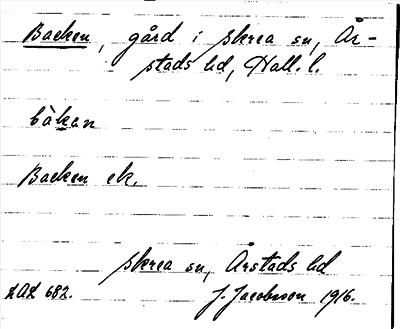 Backen, gård i Skrea sn, År-
stads hd, Hall. l.
bàkan
Backen ek.
Skrea sn, Årstads hd
LAL 682. J. Jacobsson 1916.